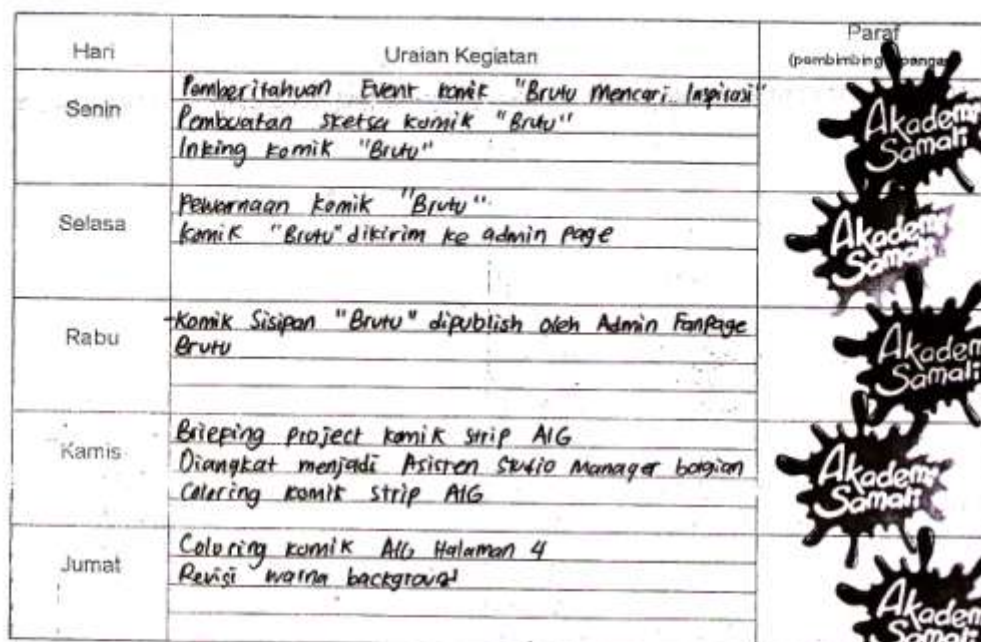 Hari Uraian Kegiatan Paraf
(pembimbing
Senin
Pemberitahuan Event komik "Brutu Mencari Inspirasi"
Pembuatan sketsa komik "Brutu"
Inking komik "Brutu"
Akademi
Samali
Selasa
Pewarnaan komik "Brutu"
Komik "Brutu" dikirim ke admin page
Akademi
Samali
Rabu
Komik Sisipan "Brutu" dipublish oleh Admin Fanpage
Brutu
Akadem
Samali
Kamis
Briefing project komik strip AIG
Diangkat menjadi Asisten Studio Manager bagian
Coloring komik strip AIG
Akademi
Samali
Jumat
Coloring komik AIG Halaman 4
Revisi warna background
Akadem
Samali